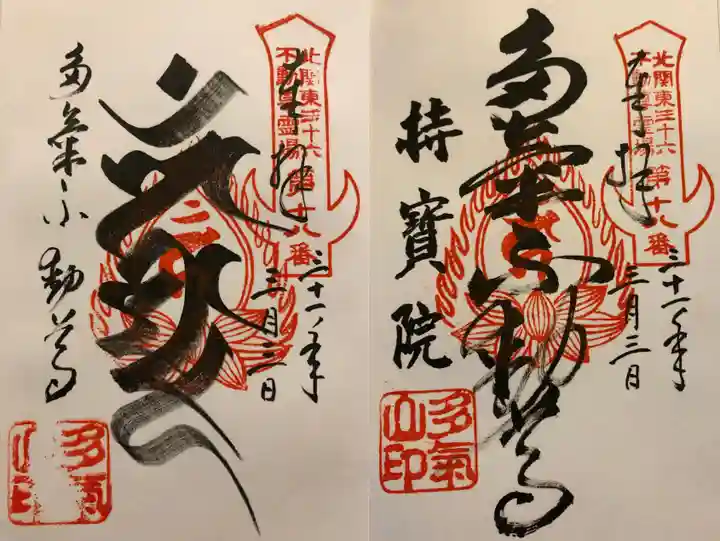 奉拝
北関東三十六
不動尊霊場
第十八番
三十一年
三月三日
多気不動尊
多氣
山印
奉拝
北関東三十六
不動尊霊場
第十八番
三十一年
三月三日
多気不動尊
持寳院
多氣
山印